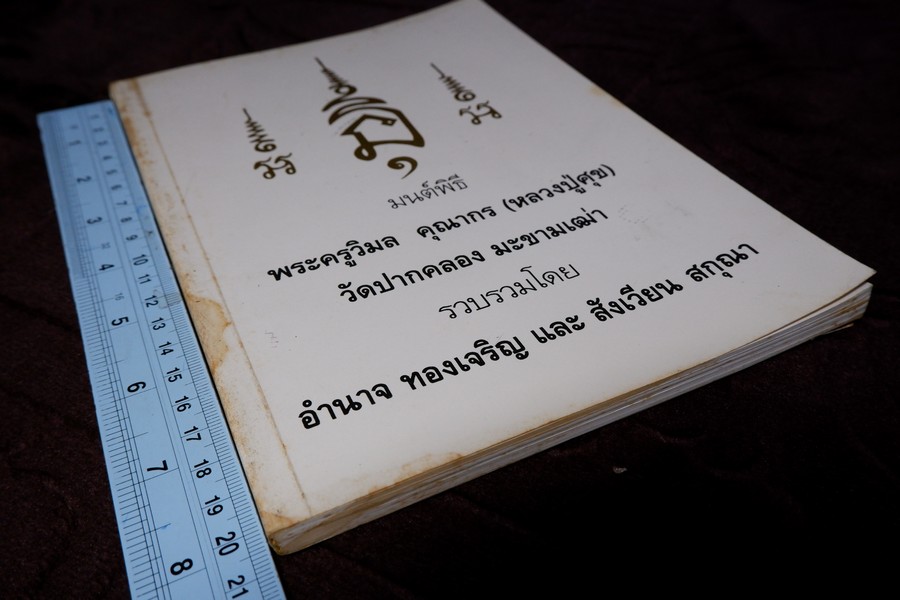 มนต์พิธี
พระครูวิมล คุณากร (หลวงปู่ศุข)
วัดปากคลอง มะขามเฒ่า
รวบรวมโดย
อำนาจ ทองเจริญ และ สังเวียน สกุณา
2
3
4
5
6
7
8
8
9
10
11
12
13
14
15
16
17
18
19
20
21